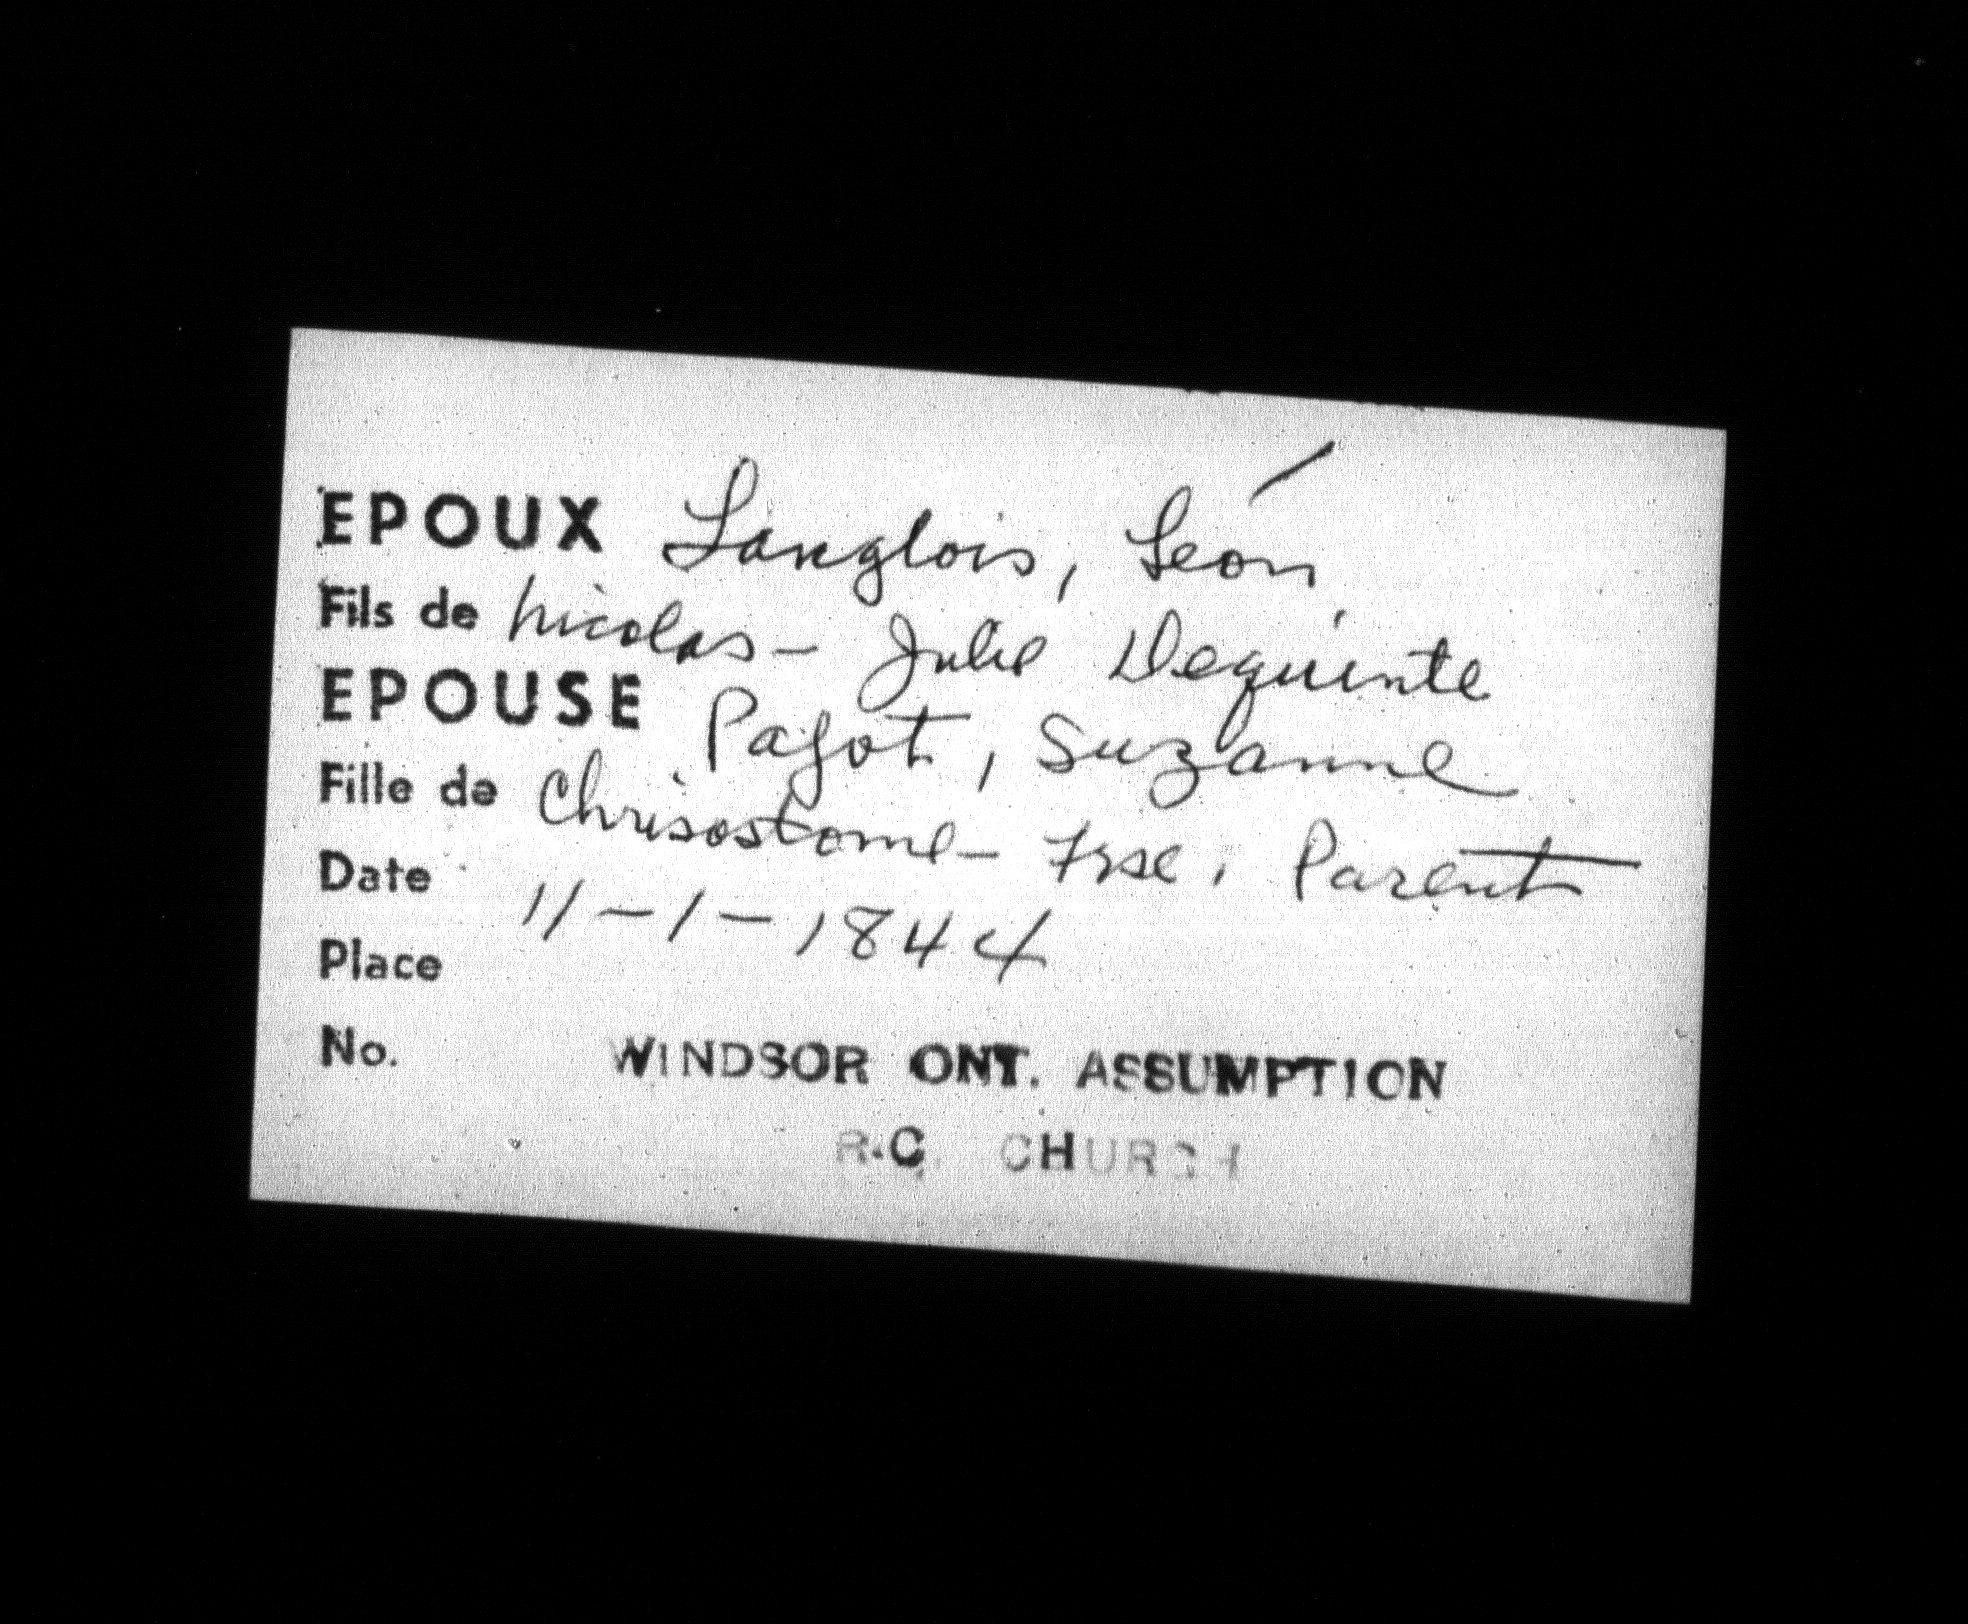 EPOUX Langlois, Léon
Fils de Nicolas - Julie Dequinte
EPOUSE Pajot, Suzanne
Fille de Chrisostome - Frse, Parent
Date 11-1-1844
Place
No. WINDSOR ONT. ASSUMPTION
R.C. CHURCH